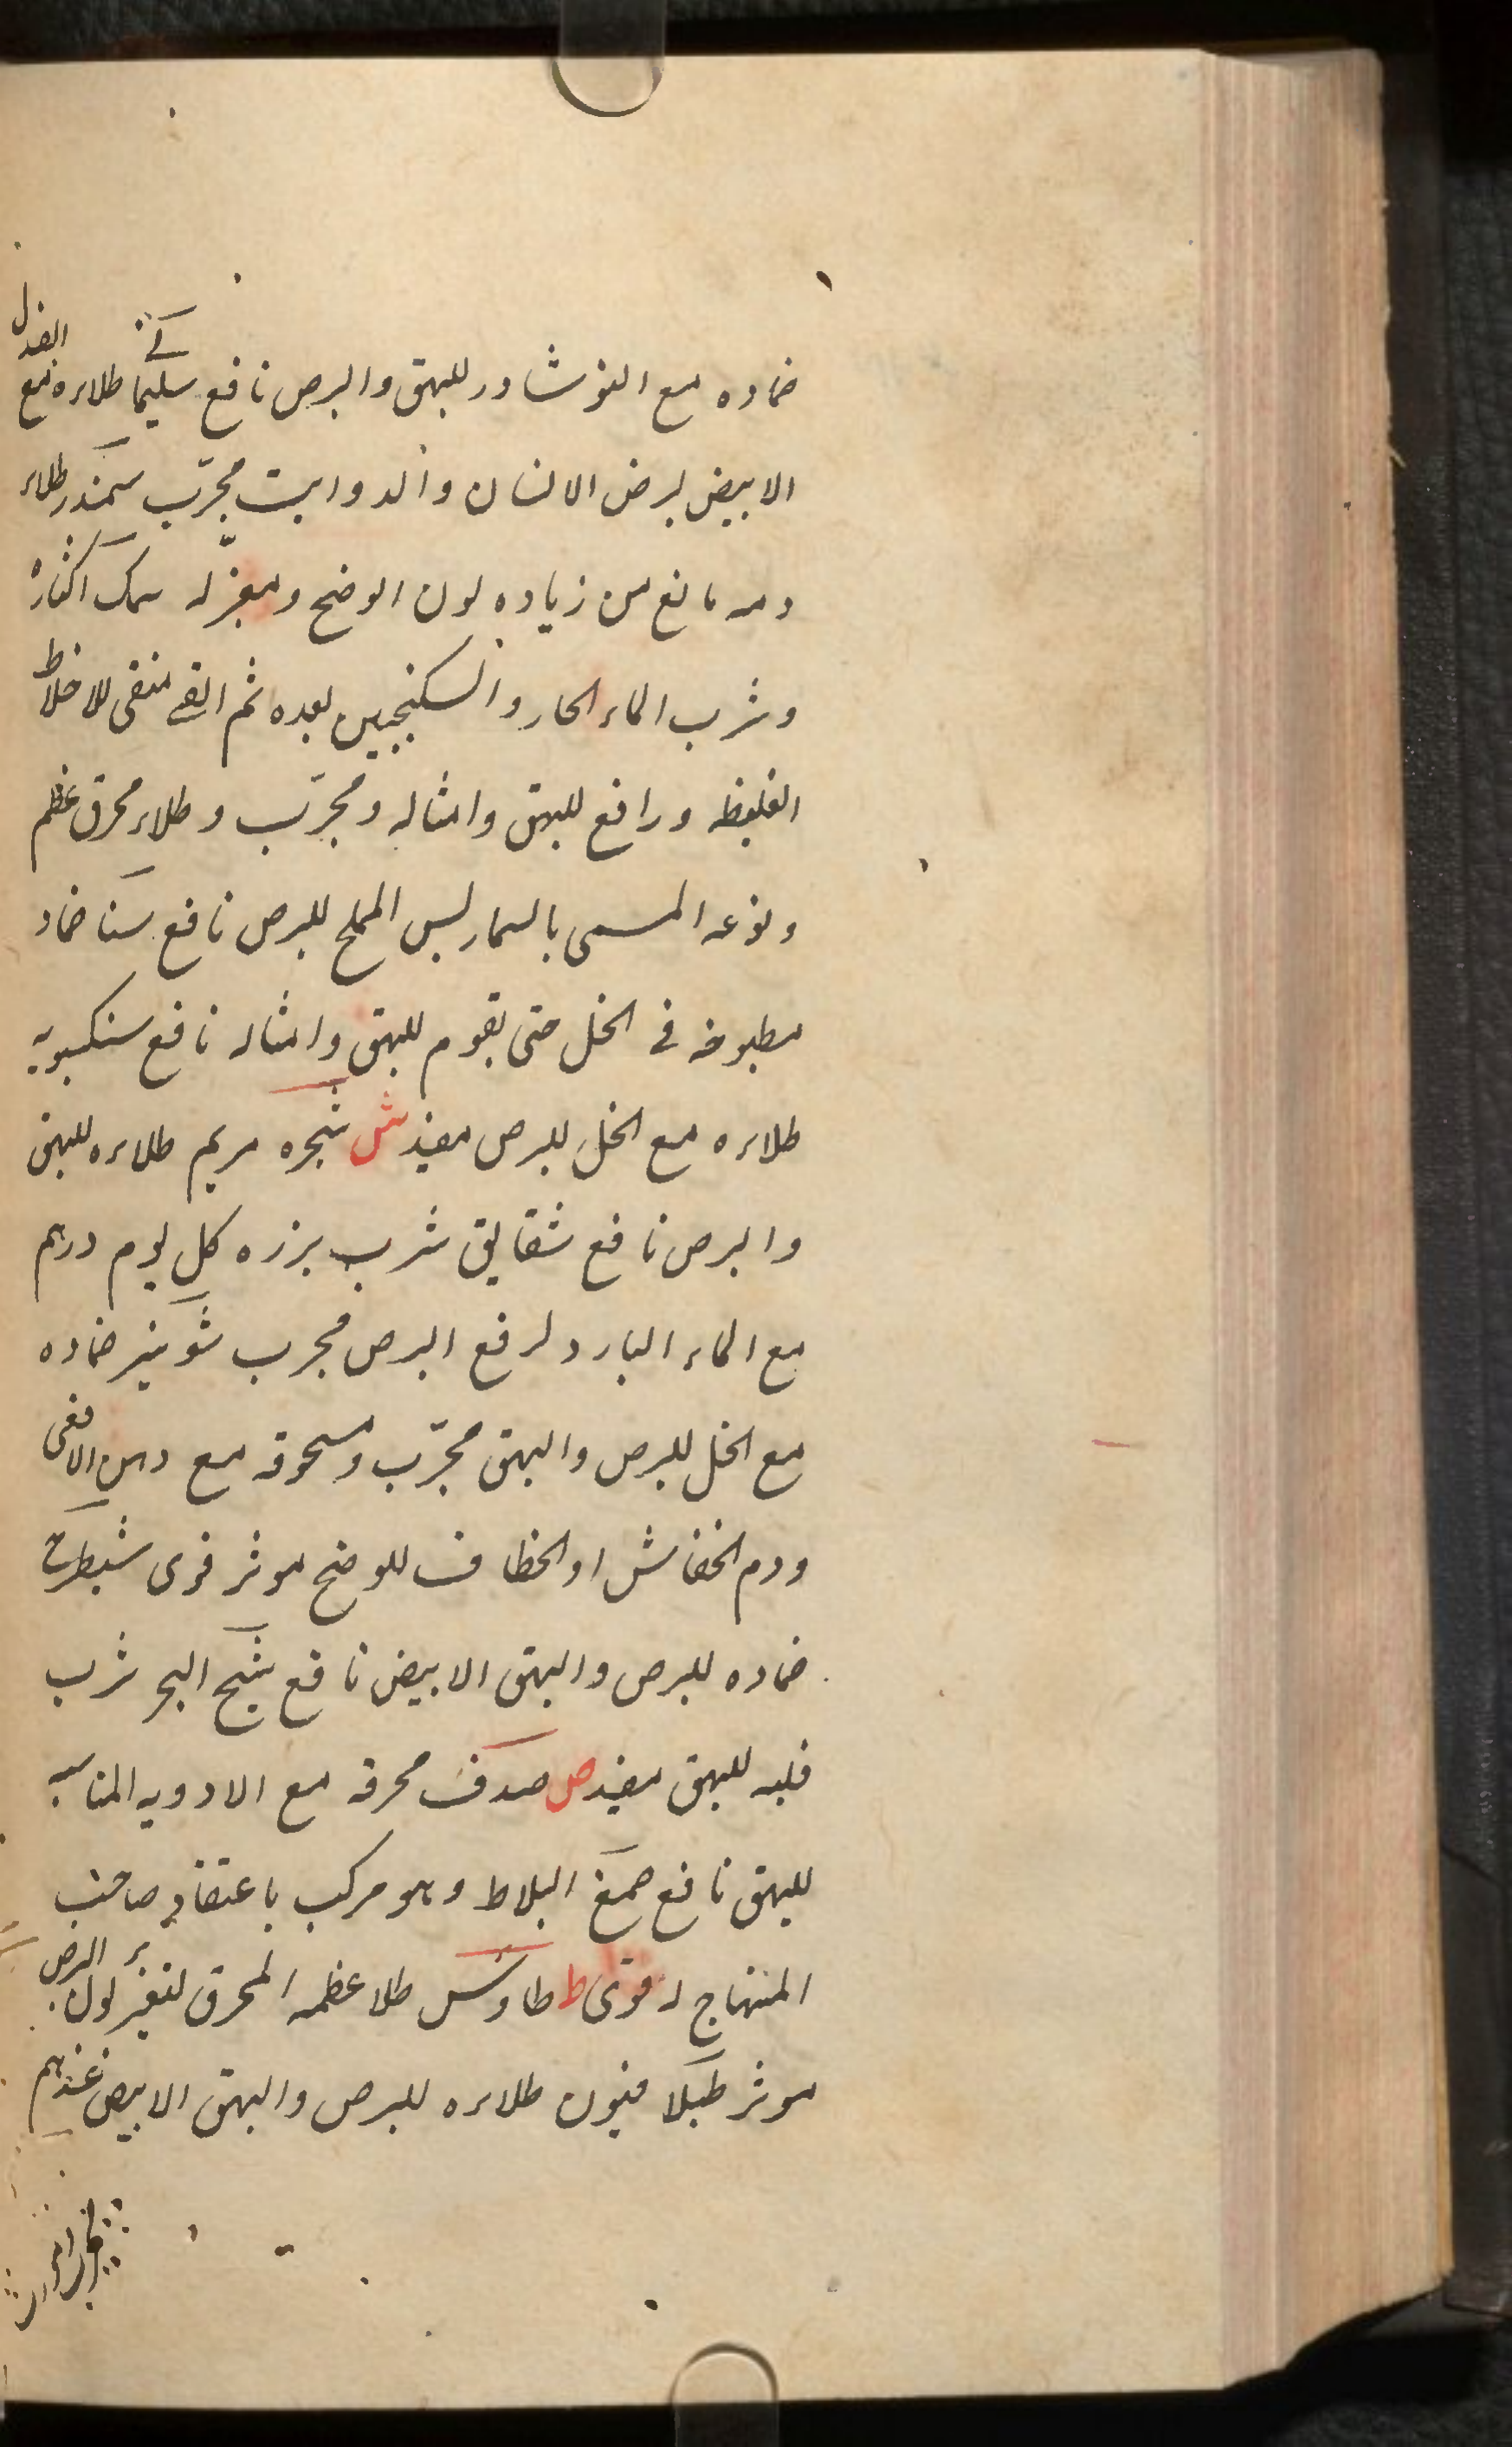 ضماده مع النوشادر للبهق والبرص نافع سليخا طلاءه مع الغزل
الابيض لبرص الانسان والدوابست مجرّب سمندر طلاء
دمه مانع من زياده لون الوضح ومغيّر له سمك اكثاره
وشرب الماء الحار والسكنجبين بعده ثم القى منقى للاخلاط
الغليظه ورافع للبهق وامثاله ومجرّب وطلاء محرق عظم
ونوعه المسمى بالسمارليس المملح للبرص نافع سنا ضماد
مطبوخه فى الخل حتى يقوم للبهق وامثاله نافع سنكسبويه
طلاءه مع الخل للبرص مفيد ش شجره مريم طلاءه للبهق
والبرص نافع شقايق شرب بزره كل يوم درهم
مع الماء البارد لرفع البرص مجرب شونيز ضماده
مع الخل للبرص والبهق مجرّب ومسحوقه مع دهن الافعى
ودم الخفاش او الخطاف للوضح موثر قوى شيطرج
ضماده للبرص والبهق الابيض نافع شيح البحر شرب
قلبه للبهق مفيد ص صدف محرقه مع الادويه المناسبه
للبهق نافع صمغ البلاط وهو مركب باعتقاد صاحب
المنهاج له قوى ط طاوس طلا عظمه المحرق لتغير لون البرص
موثر طيلافيون طلاءه للبرص والبهق الابيض عندهم